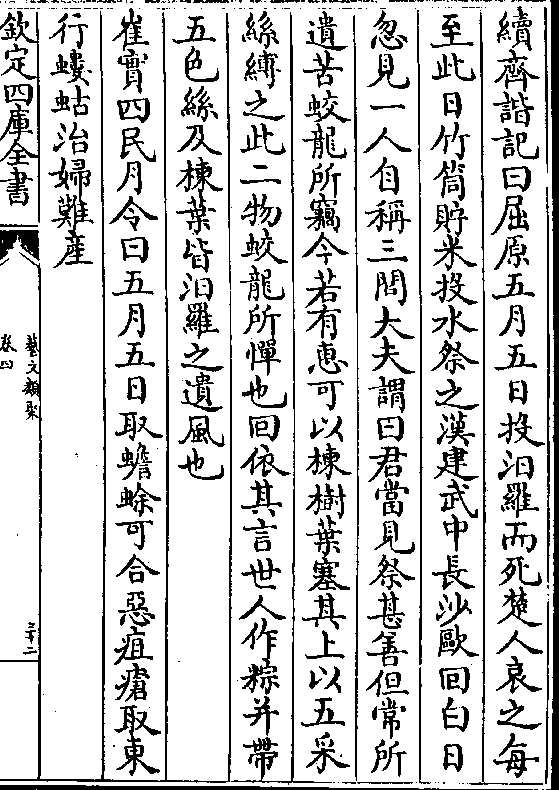 續齊諧記曰屈原五月五日投汨羅而死楚人哀之每
至此日竹筒貯米投水祭之漢建武中長沙歐回白日
忽見一人自稱三閭大夫謂曰君當見祭甚善但常所
遺苦蛟龍所竊今若有惠可以楝樹葉塞其上以五采
絲縛之此二物蛟龍所憚也回依其言世人作粽并帶
五色絲及楝葉皆汨羅之遺風也
崔寔四民月令曰五月五日取蟾蜍可合惡疽瘡取東
行螻蛄治婦難產
欽定四庫全書
藝文類聚
卷四
三十二